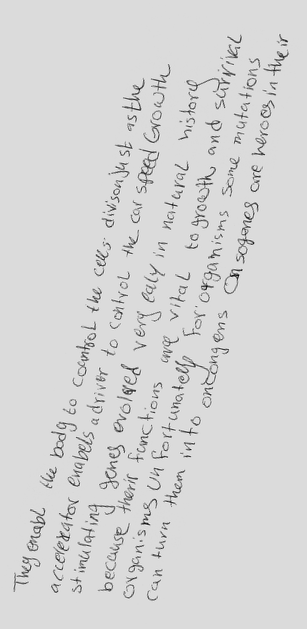 They enabl the body to countrol the cells. divison just as the
accelerator enabels a driver to control the car speed Growth
stimulating genes evolored very ealy in natural history
because their functions are vital to growth and survival
organisms Un fortunatelly for organisms some mutations
can turn them into oncongens Onsogenes are heroes in their